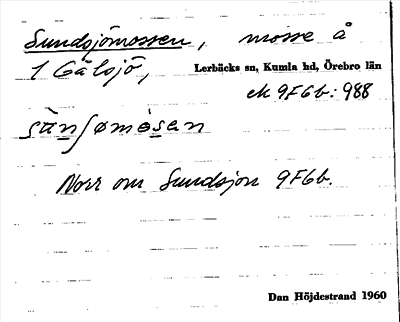 Sundsjömossen, mosse å
1 Gälsjö, Lerbäcks sn, Kumla hd, Örebro län
ek 9F6b: 988
sànsømòsan
Norr om Sundsjön 9F6b.
Dan Höjdestrand 1960